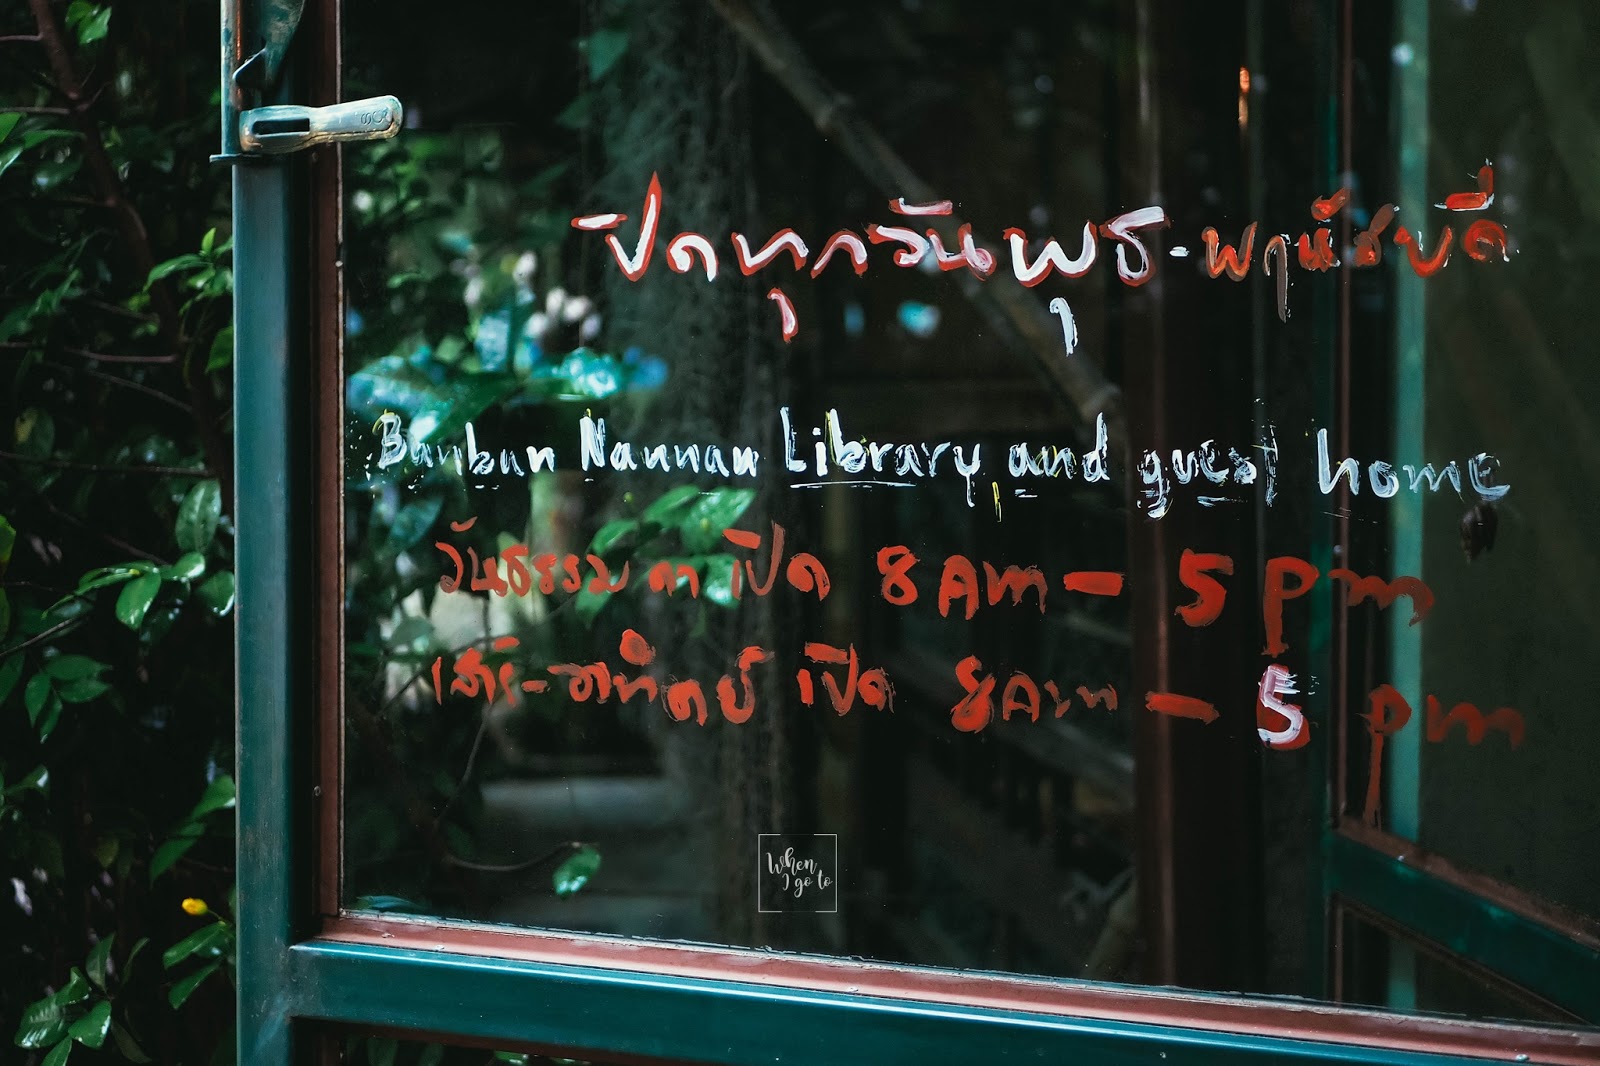 ปิดทุกวันพุธ-พฤหัสบดี
Banban Nannan Library and guest home
วันธรรมดา เปิด 8 Am - 5 pm
เสาร์-อาทิตย์ เปิด 8 Am - 5 pm
When I go to